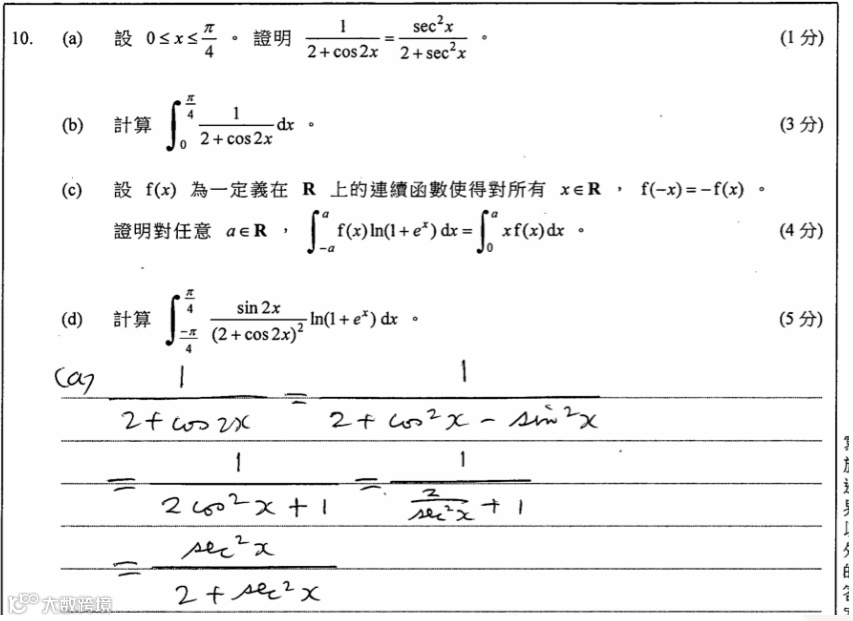 10. (a) 設 0 ≤ x ≤ π/4 。 證明 1/(2+cos2x) = sec²x/(2+sec²x) 。 (1 分)
(b) 計算 ∫₀^(π/4) 1/(2+cos2x) dx 。 (3 分)
(c) 設 f(x) 為一定義在 R 上的連續函數使得對所有 x∈R , f(−x)=−f(x) 。
證明對任意 a∈R , ∫₋ₐ^a f(x)ln(1+eˣ)dx = ∫₀^a xf(x)dx 。 (4 分)
(d) 計算 ∫_(−π/4)^(π/4) sin2x/(2+cos2x)² ln(1+eˣ)dx 。 (5 分)
(a) 1/(2+cos2x) = 1/(2+cos²x − sin²x)
= 1/(2cos²x+1) = 1/(2/sec²x + 1)
= sec²x/(2+sec²x)
大數跨境